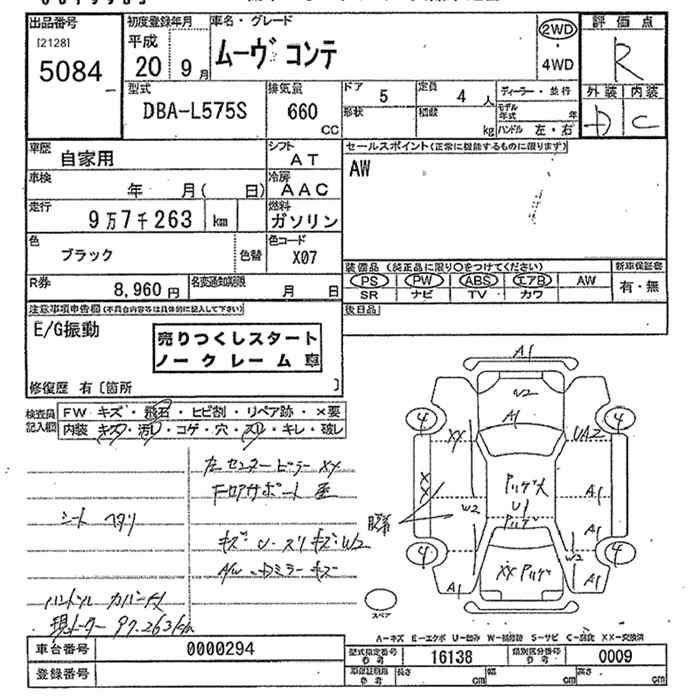 出品番号
[2128]
5084
初度登録年月
平成
20 9月
車名・グレード
ムーヴ コンテ
2WD
・
4WD
評価点
R
外装 内装
D C
型式
DBA-L575S
排気量
660
CC
ドア 5
形状
定員 4 人
積載
kg
ディーラー・並行
モデル年式 年
ハンドル 左・右
車歴 自家用
シフト AT
車検 年 月( 日)
冷房 AAC
走行 9万7千263 km
燃料 ガソリン
色 ブラック
色替
色コード X07
R券 8,960円
名変通知期限 月 日
セールスポイント(正常に機能するものに限ります)
AW
装備品 (純正品に限り○をつけてください)
PS PW ABS エアB AW
SR ナビ TV カワ
新車保証書
有・無
後日品
注意事項申告欄(不具合内容等は具体的に記入して下さい)
E/G振動
売りつくしスタート
ノークレーム 車
修復歴 有〔箇所 〕
検査員
記入欄
FW キズ・飛石・ヒビ割・リペア跡・×要
内装・キズ・汚レ・コゲ・穴・スレ・キレ・破レ
左センターピラー XX
シート ヘタリ
キズ・U・スリキズ・W2
ハンドル カバー
現メーター 97.263km
A1
W2
A1
4
4
XX
UA2
XX
W2
U1
A1
A1
4
W2
4
A1
XX
A1
A1
スペア
A―キズ E―エクボ U―凹み W―補修跡 S―サビ C―腐蝕 XX―交換済
車台番号 0000294
登録番号
型式指定番号
参考
16138
類別区分番号
参考
0009
車検証期限
参考
長さ cm
幅 cm
高さ cm